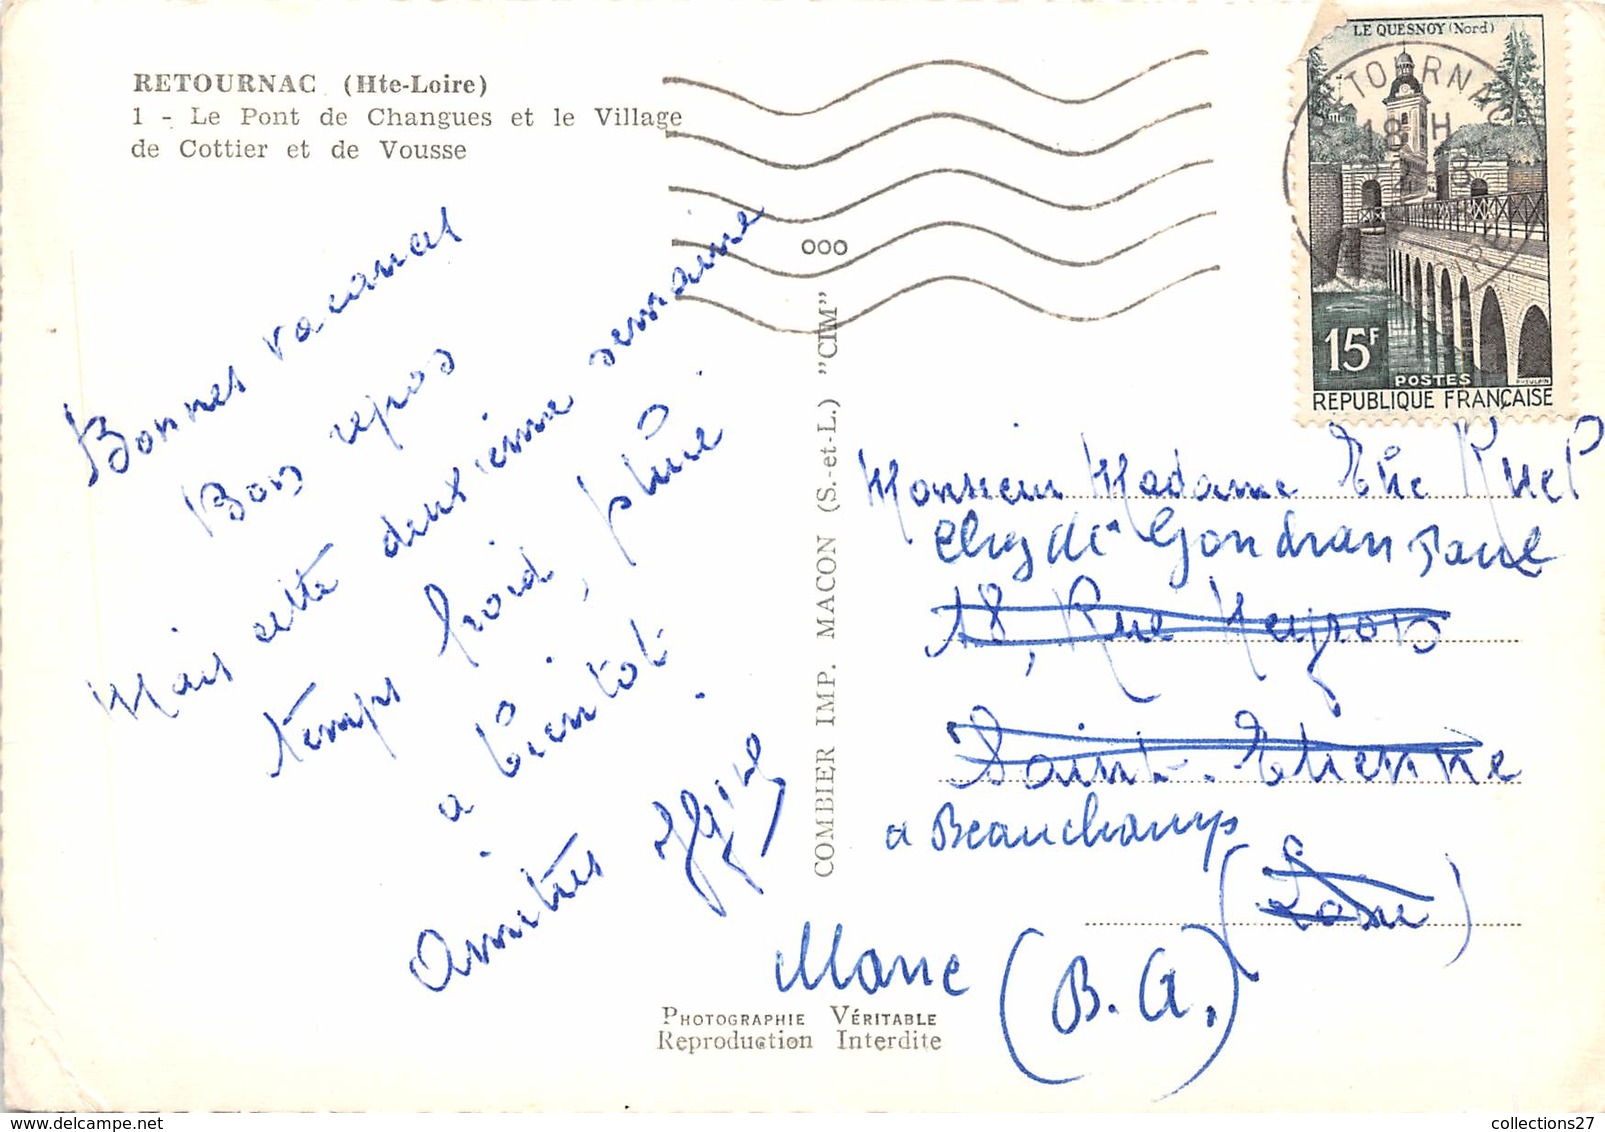 RETOURNAC (Hte-Loire)
1 - Le Pont de Changues et le Village
de Cottier et de Vousse
Bonnes vacances
Bon repos
Mais cette deuxième semaine
temps froid, pluie.
a bientot.
Amitiés
COMBIER IMP. MACON (S.-et-L.) "CIM"
PHOTOGRAPHIE VÉRITABLE
Reproduction Interdite
LE QUESNOY (Nord)
15F
POSTES
REPUBLIQUE FRANÇAISE
RETOURNAC
18 H
Monsieur Madame
chez Mr Gondran Paul
18, Rue Neyron
Saint-Etienne
a Beauchamp
(Loire)
(B.A.)
collections27